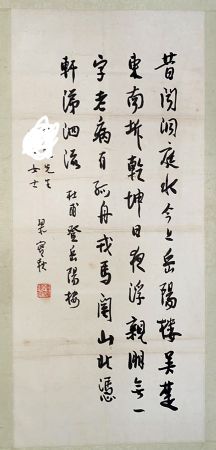 昔聞洞庭水今上岳陽樓吳楚
東南坼乾坤日夜浮親朋無一
字老病有孤舟戎馬關山北憑
軒涕泗流 杜甫登岳陽樓
先生
女士
梁實秋